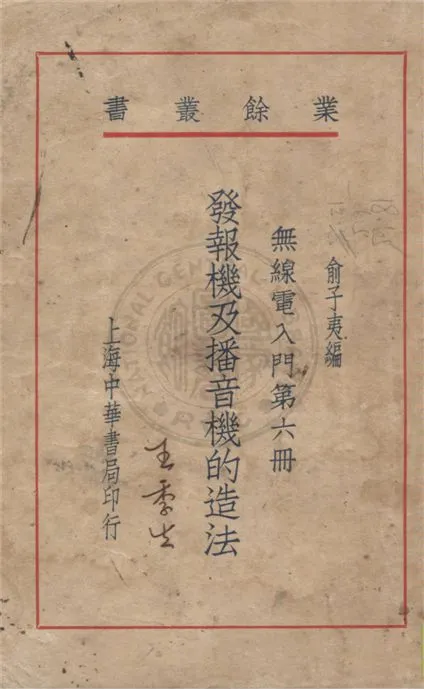 業餘叢書
俞子夷編
無線電入門第六冊
發報機及播音機的造法
上海中華書局印行